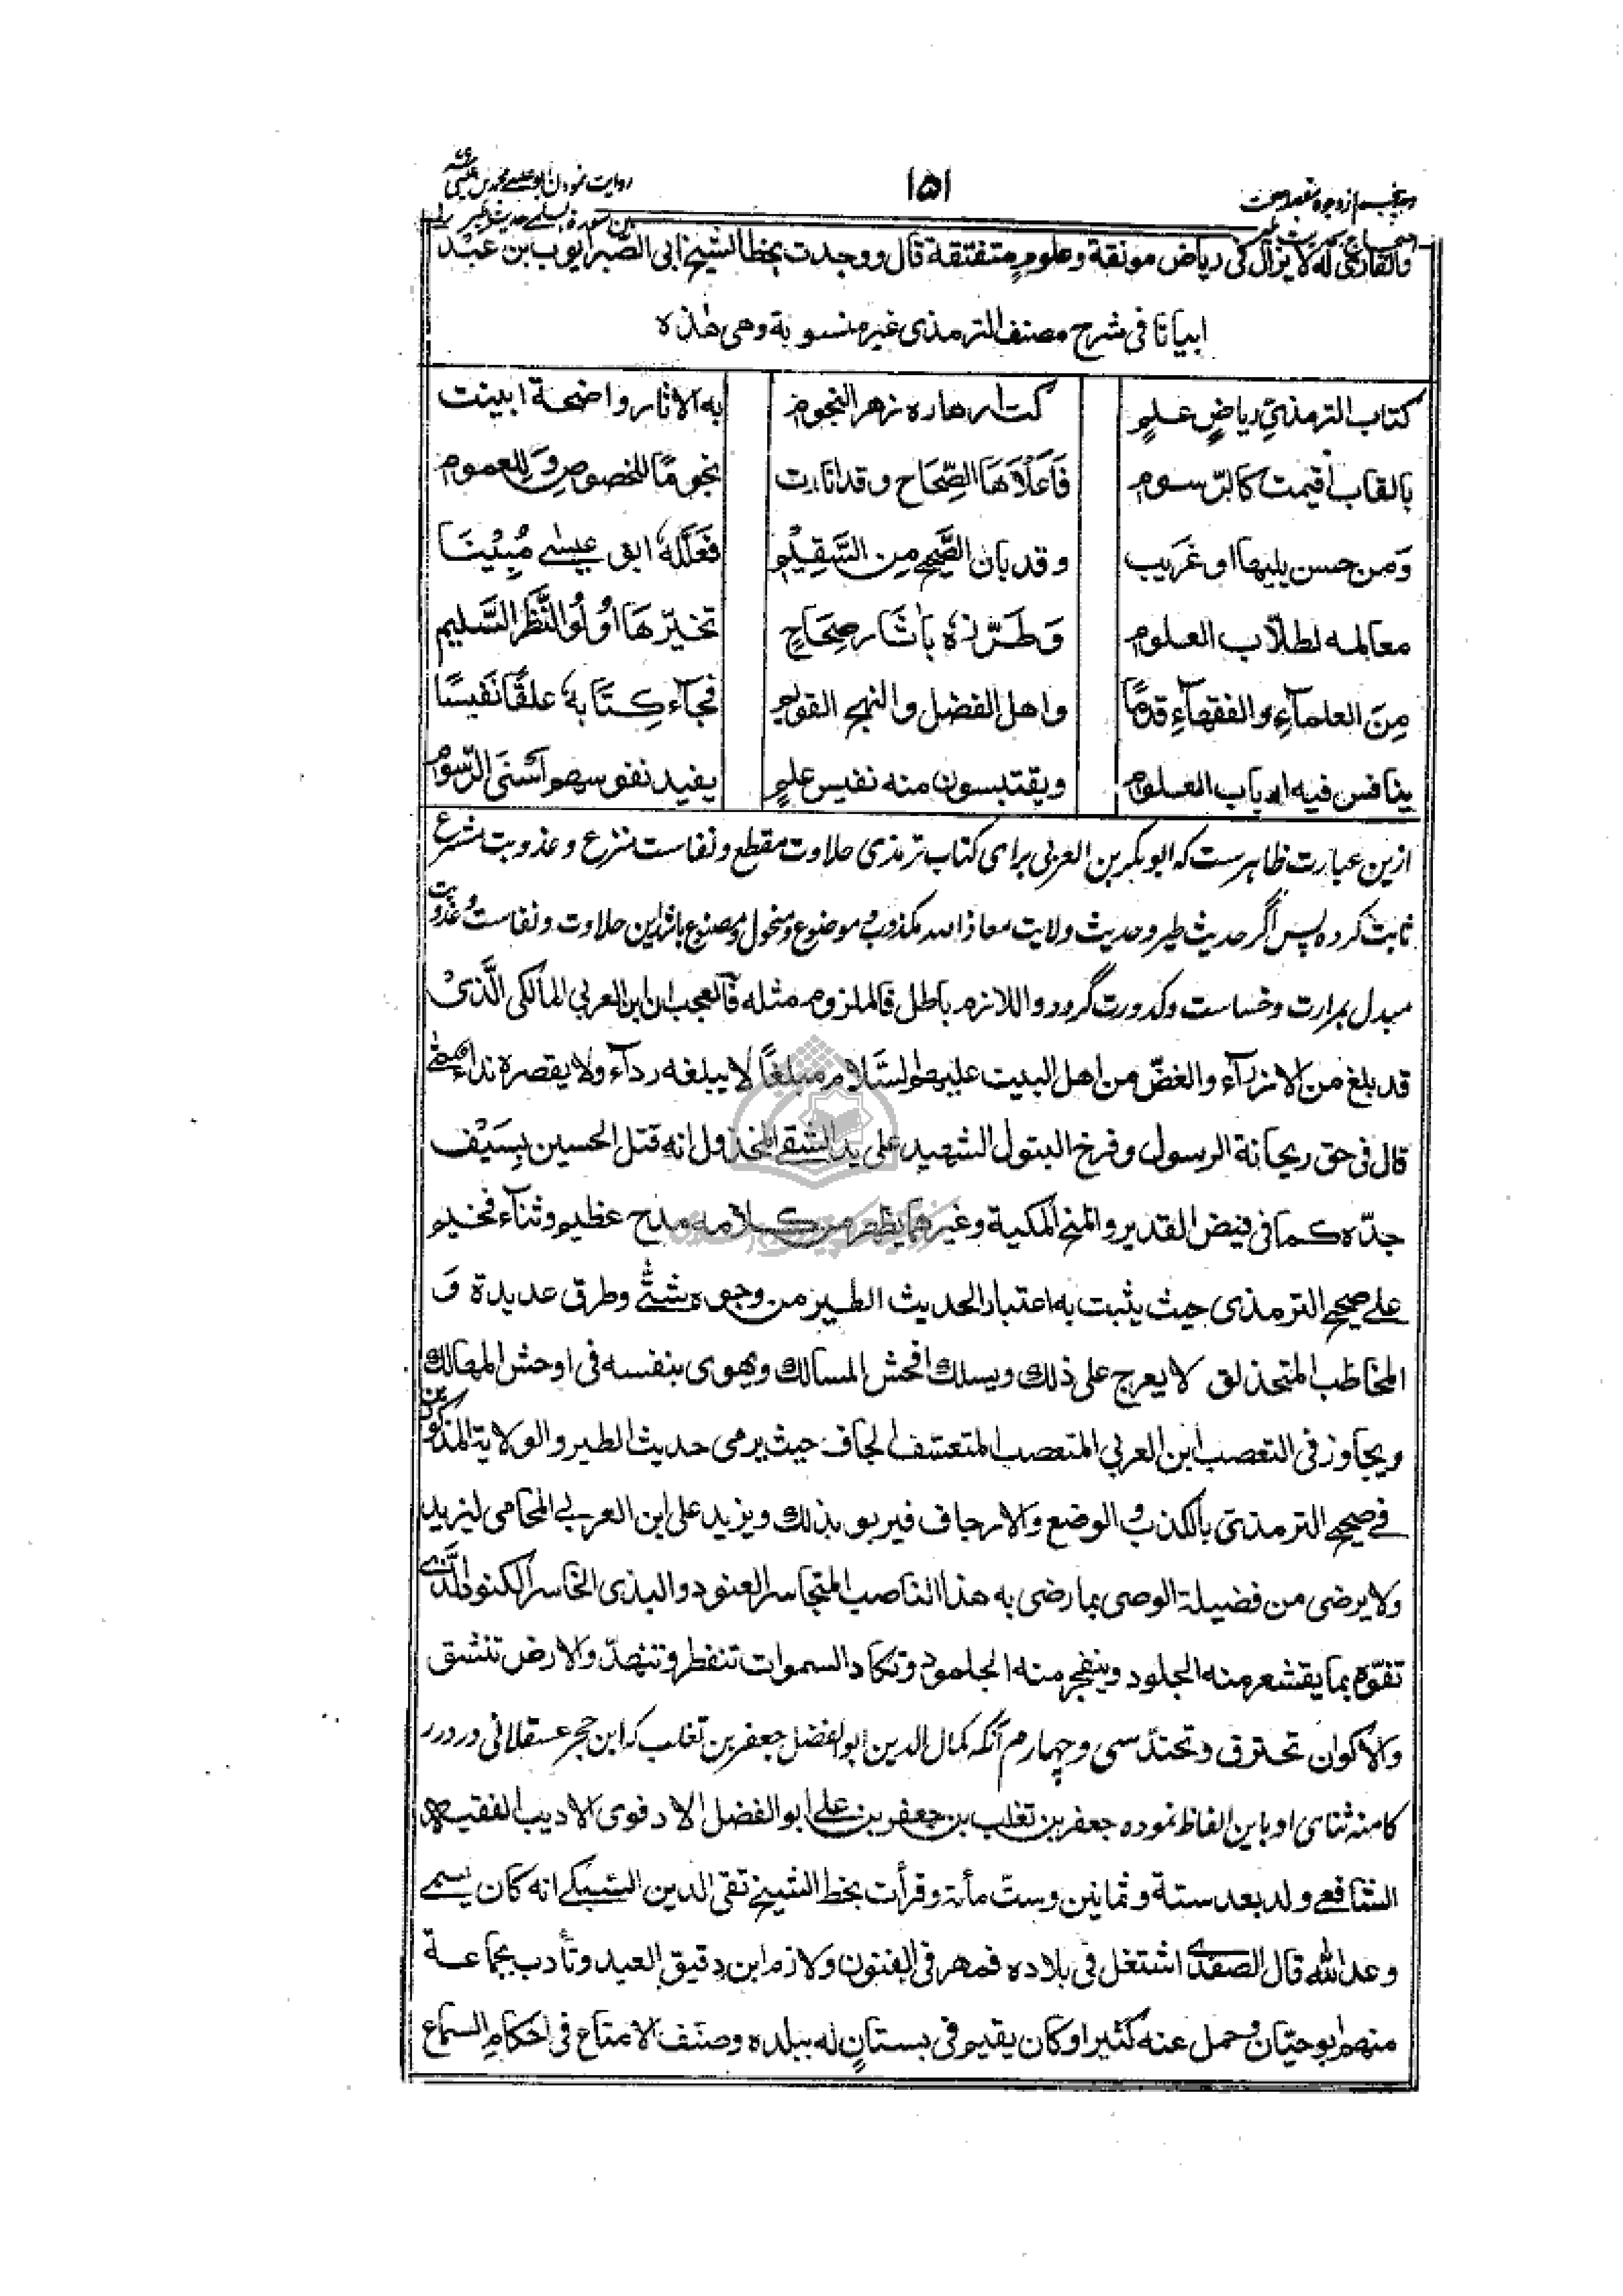 وجه پنجم از وجوه
۱۵۱
روایت نمودن ابو عیسی محمد بن عیسی
بن سورة السلمی حدیث طیر را
والقاری له لا یزال فی ریاض مونقة وعلوم متفتقة قال ووجدت بخط الشیخ ابی الصبر ایوب بن عبد
ابیاتا فی شرح مصنف الترمذی غیر منسوبة وهی هذه
کتاب الترمذیِ ریاضِ علمٍ حکت ازهاره زهر النجوم به الاثار واضحة ابینت
بالقاب اقیمت کالرسوم فَاَعْلَاهَا الصِّحَاح وقد انارت نجومًا للخصوص وَلِلعموم
وَمن حسن یلیها او غَریب وقد بان الصَّحیح مِن السَّقِیْم فَعَلَّلَهُ ابو عیسٰی مُبِیْنًا
معالمه لطلّاب العلوم وَطَرَّزَهُ باٰثَار صِحَاحٍ تخیّرهَا اُولُو النَّظَرِ السَّلیم
مِنَ العلمآءِ والفقهآءِ قدمًا واهل الفضل والنهج القویم فجآء کِتَابهُ عِلقًا نَفیسًا
ینافس فیه ارباب العلوم ویقتبسون منه نفیس علمٍ یفید نفوسهم اَسْنَی الرّسوم
ازین عبارت ظاهرست که ابوبکر بن العربی برای کتاب ترمذی حلاوت مقطع ونفاست منزع وعذوبت مشرع
ثابت کرده پس اگر حدیث طیر وحدیث ولایت معاذ الله مکذوب وموضوع ومنحول ومصنوع باشد این حلاوت ونفاست وعذوبت
مبدل بمرارت وخساست وکدورت گردد واللازم باطل فالملزوم مثله فالعجب ان ابن العربی المالکی الَّذیْ
قد بلغ من الازرآء والغضّ من اهل البیت علیهم السَّلام مبلغًا لا یبلغه ردآء ولا یقصره نداء
قال فی حق ریحانة الرسول وفرخ البتول الشهید علی ید الشقی المخذول انه قتل الحسین بِسَیْف
جدّه کما فی فیض القدیر والمنح المکیة وغیرهما یظهر من کلامه مدح عظیم وثنآء فخیم
علی صحیح الترمذی حیث یثبت به اعتبار الحدیث الطیر من وجوه شتّٰی وطرق عدیدة وَ
المخاطب المتحذلق لا یعرج علی ذلك ویسلك افحش المسالك ویهوی بنفسه فی اوحش المهالك
ویجاوز فی التعصب ابن العربی المتعصب المتعسّف الجاف حیث یرمی حدیث الطیر والولایة المذکورین
فی صحیح الترمذی بالکذب والوضع والارجاف فیربو بذلك ویزید علی ابن العربی المحامی لیزید
ولا یرضی من فضیلة الوصی بما رضی به هذا الناصب المتجاسر العنود والبذی الخاسر الکنود الَّذی
تفوّه بما یقشعر منه الجلود وینفجر منه الجلمود وتکاد السموات تنفطر وتنهدّ والارض تنشق
والاکوان تحترق وتحتدّ سی وچهارم آنکه کمال الدین ابو الفضل جعفر بن تغلب که ابن حجر عسقلانی در درر
کامنه ثنای او باین الفاظ نموده جعفر بن تغلب بن جعفر بن علی ابو الفضل الادفوی الادیب الفقیه
الشافعی ولد بعد ستة وثمانین وستّ مأئة وقرأت بخط الشیخ تقی الدین السبکی انه کان یسمی
وعد الله قال الصفدی اشتغل فی بلاده فمهر فی الفنون ولازم ابن دقیق العید وتأدب بجماعة
منهم ابو حیّان وحمل عنه کثیرا وکان یقیم فی بستانٍ له ببلده وصنف الامتاع فی احکام السماع